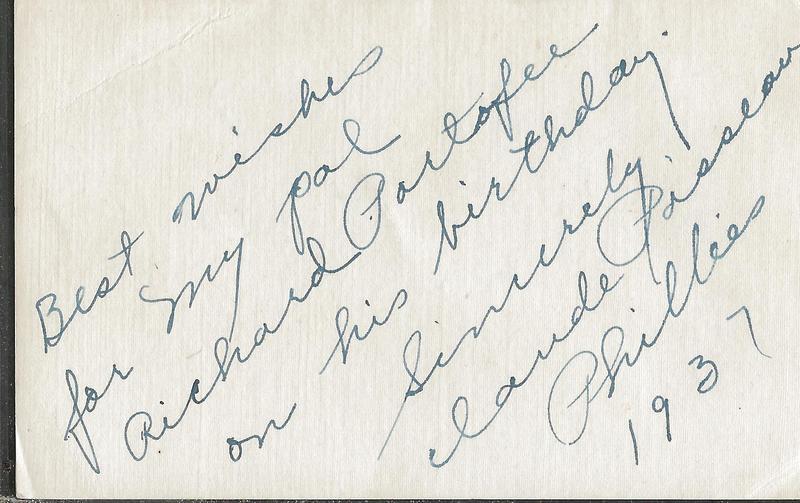 Best wishes
for my pal
Richard Portofee
on his birthday.
Sincerely
Claude Passeau
Phillies
1937